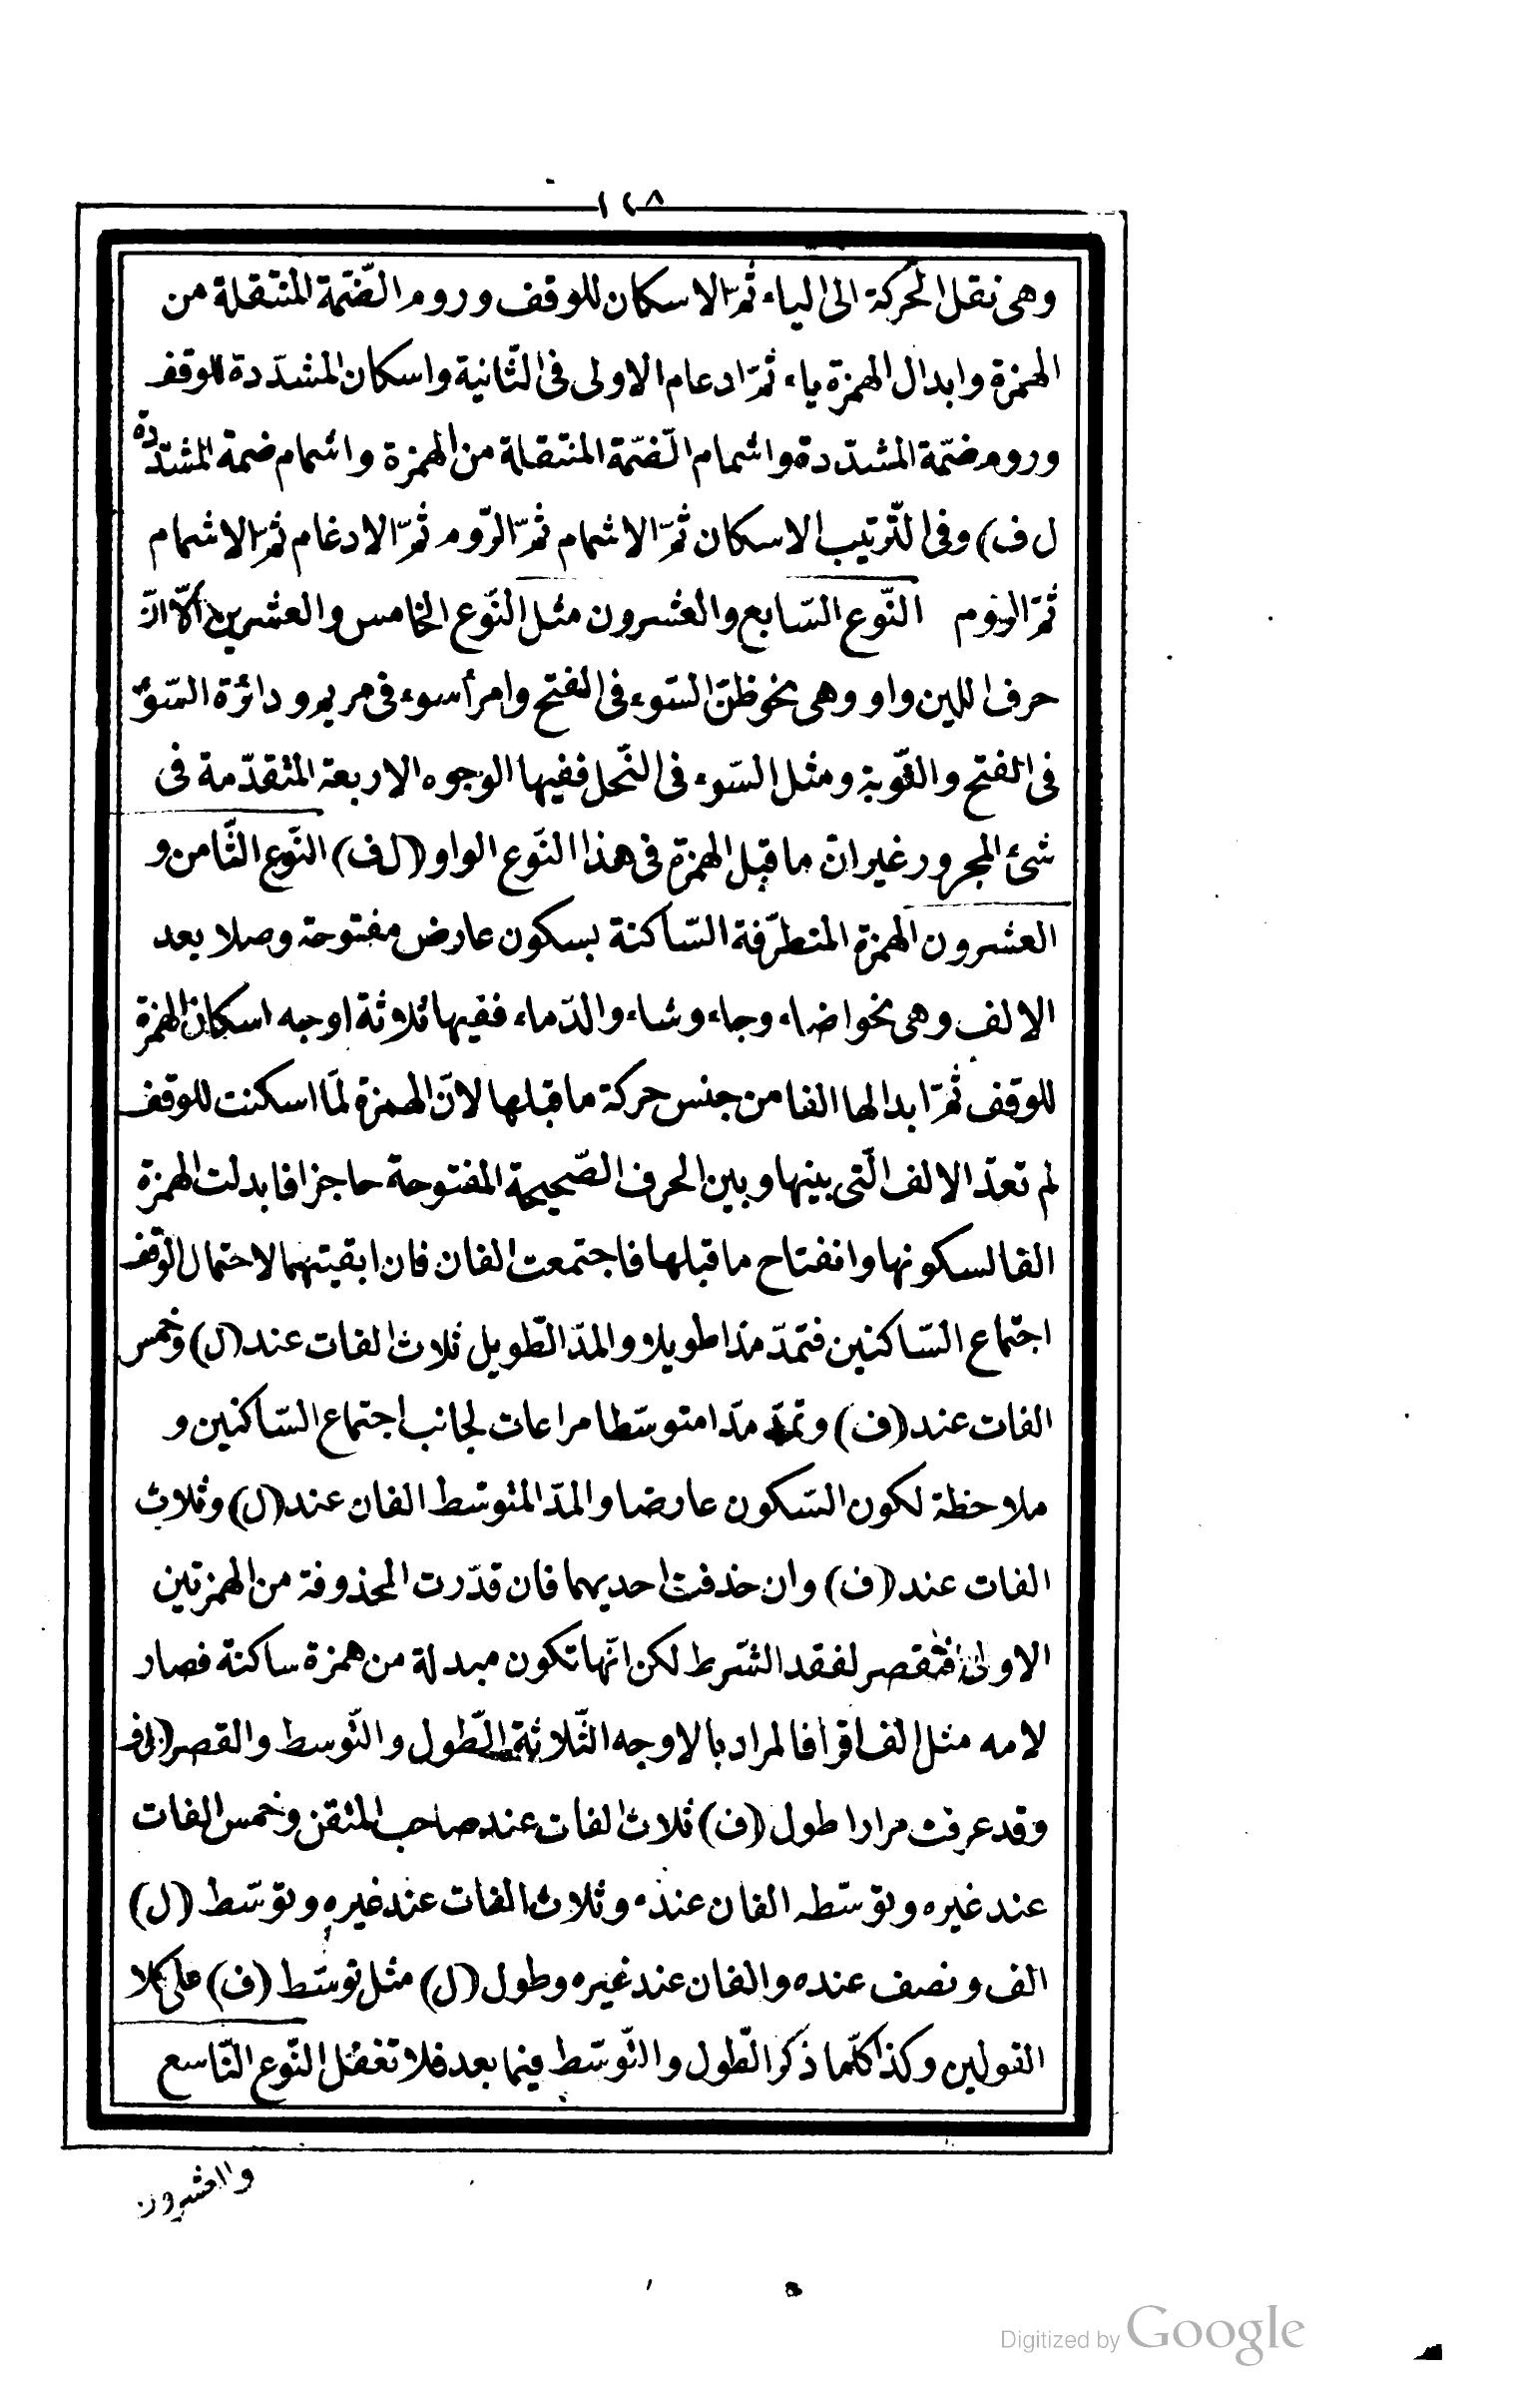 ١٢٨
وهى نقل الحركة الى الياء ثمّ الاسكان للوقف وروم الضّمّة المنتقلة من
الهمزة وابدال الهمزة ياء ثمّ ادغام الاولى فى الثّانية واسكان المشدّدة للوقف
وروم ضمّة المشدّدة واشمام الضّمّة المنتقلة من الهمزة واشمام ضمة المشدّدة
(ل ف) وفى التّرتيب الاسكان ثمّ الاشمام ثمّ الرّوم ثمّ الادغام ثمّ الاشمام
ثمّ الرّوم النّوع السّابع والعشرون مثل النّوع الخامس والعشرين الّا انّ
حرف اللين واو وهى نحو ظنّ السّوء فى الفتح وامرأ سوء فى مريم ودائرة السّوء
فى الفتح والتّوبة ومثل السّوء فى النّحل ففيها الوجوه الاربعة المتقدّمة فى
شئ المجرور غير انّ ما قبل الهمزة فى هذا النّوع الواو (ل ف) النّوع الثّامن و
العشرون الهمزة المتطرّفة السّاكنة بسكون عارض مفتوحة وصلا بعد
الالف وهى نحو اضاء وجاء وشاء والدّماء ففيها ثلاثة اوجه اسكان الهمزة
للوقف ثمّ ابدالها الفا من جنس حركة ما قبلها لانّ الهمزة لمّا اسكنت للوقف
لم تعدّ الالف الّتى بينها وبين الحرف الصّحيحة المفتوحة حاجزا فابدلت الهمزة
الفا لسكونها وانفتاح ما قبلها فاجتمعت الفان فان ابقيتهما لاحتمال الوقف
اجتماع السّاكنين فتمدّ مدّا طويلا والمدّ الطّويل ثلاث الفات عند (ل) وخمس
الفات عند (ف) وتمدّ مدّا متوسّطا مراعات لجانب اجتماع السّاكنين و
ملاحظة لكون السّكون عارضا والمدّ المتوسّط الفان عند (ل) وثلاث
الفات عند (ف) وان حذفت احديهما فان قدّرت المحذوفة من الهمزتين
الاولى فتقصر لفقد الشّرط لكن انّها تكون مبدلة من همزة ساكنة فصار
لامه مثل الف اقرأ فالمراد بالاوجه الثّلاثة الطّول والتّوسط والقصر (ل ف)
وقد عرفت مرارا طول (ف) ثلاث الفات عند صاحب المتقن وخمس الفات
عند غيره وتوسّطه الفان عنده وثلاث الفات عند غيره وتوسّط (ل)
الف ونصف عنده والفان عند غيره وطول (ل) مثل توسّط (ف) على كلا
القولين وكذا كلّما ذكر الطّول والتّوسّط فيما بعد فلا تغفل النّوع التّاسع
والعشرون
Digitized by Google